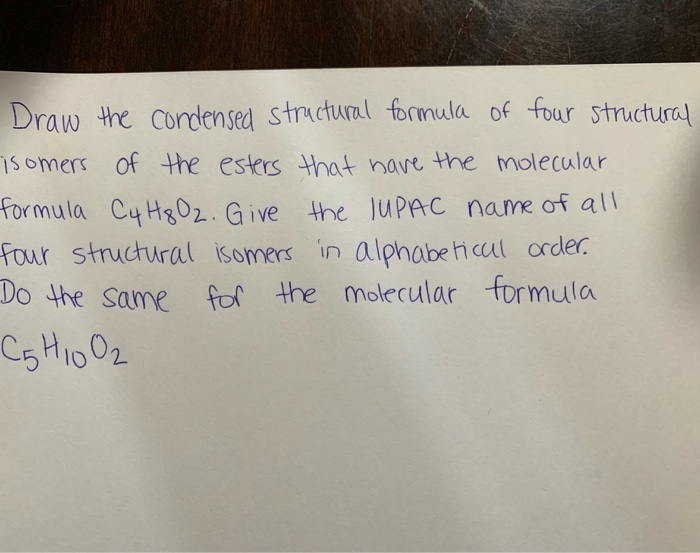 Draw the condensed structural formula of four structural
isomers of the esters that have the molecular
formula C4H8O2. Give the IUPAC name of all
four structural isomers in alphabetical order.
Do the same for the molecular formula
C5H10O2